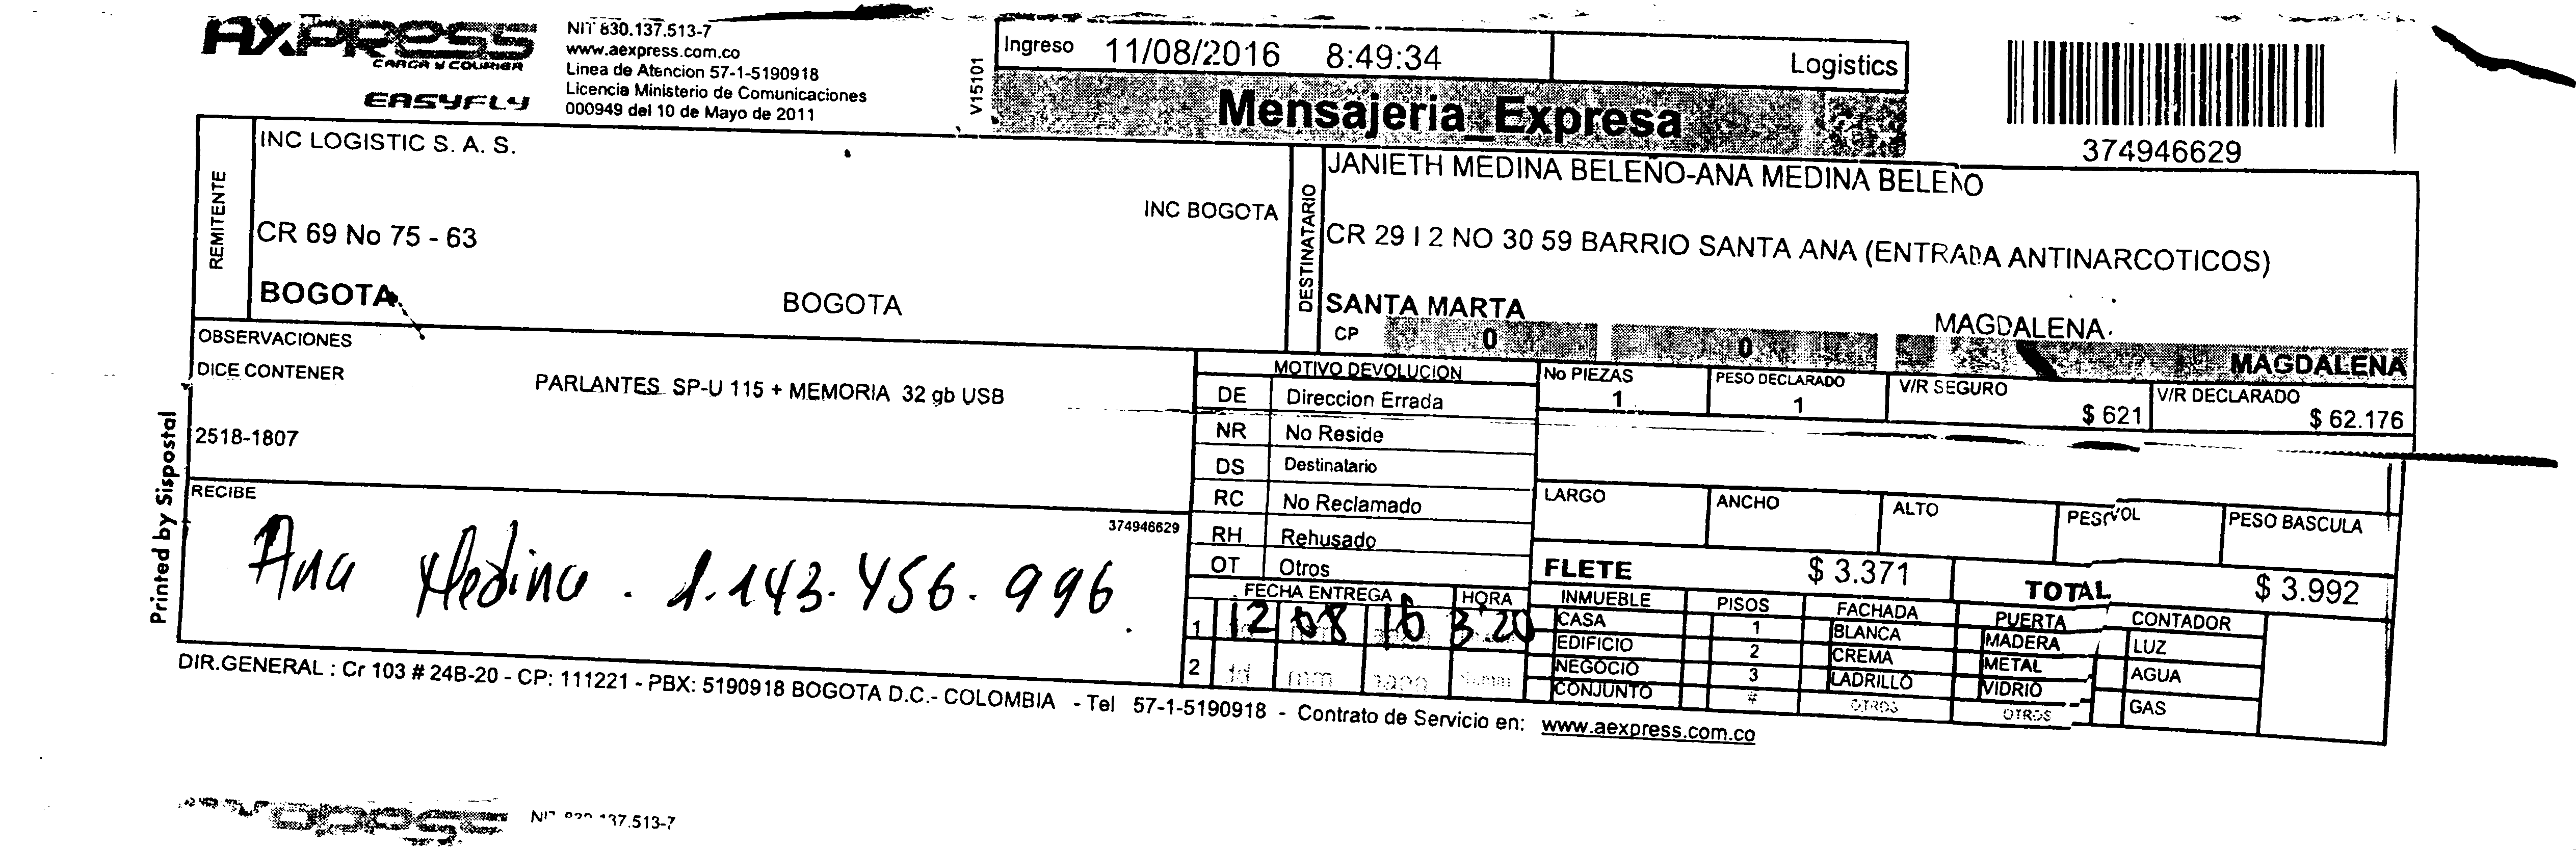 AXPRESS
CARGA Y COURIER
EASYFLY
NIT 830.137.513-7
www.aexpress.com.co
Linea de Atencion 57-1-5190918
Licencia Ministerio de Comunicaciones
000949 del 10 de Mayo de 2011
V15101
Ingreso 11/08/2016 8:49:34 Logistics
Mensajeria_Expresa
374946629
REMITENTE
INC LOGISTIC S. A. S.
INC BOGOTA
CR 69 No 75 - 63
BOGOTA BOGOTA
DESTINATARIO
JANIETH MEDINA BELEÑO-ANA MEDINA BELEÑO
CR 29 I 2 NO 30 59 BARRIO SANTA ANA (ENTRADA ANTINARCOTICOS)
SANTA MARTA MAGDALENA
CP 0 0 MAGDALENA
OBSERVACIONES
DICE CONTENER PARLANTES SP-U 115 + MEMORIA 32 gb USB
2518-1807
MOTIVO DEVOLUCION
DE Direccion Errada
NR No Reside
DS Destinatario
RC No Reclamado
RH Rehusado
OT Otros
No PIEZAS 1
PESO DECLARADO 1
V/R SEGURO $ 621
V/R DECLARADO $ 62.176
LARGO ANCHO ALTO PESO VOL PESO BASCULA
FLETE $ 3.371 TOTAL $ 3.992
RECIBE
374946629
Ana Medina . 1.143.456.996.
FECHA ENTREGA HORA
1 12 08 16 3 20
2 dd mm aaaa hh:mm
INMUEBLE PISOS FACHADA PUERTA CONTADOR
CASA 1 BLANCA MADERA LUZ
EDIFICIO 2 CREMA METAL AGUA
NEGOCIO 3 LADRILLO VIDRIO GAS
CONJUNTO # OTROS OTROS
Printed by Sispostal
DIR.GENERAL : Cr 103 # 24B-20 - CP: 111221 - PBX: 5190918 BOGOTA D.C.- COLOMBIA - Tel 57-1-5190918 - Contrato de Servicio en: www.aexpress.com.co
137.513-7